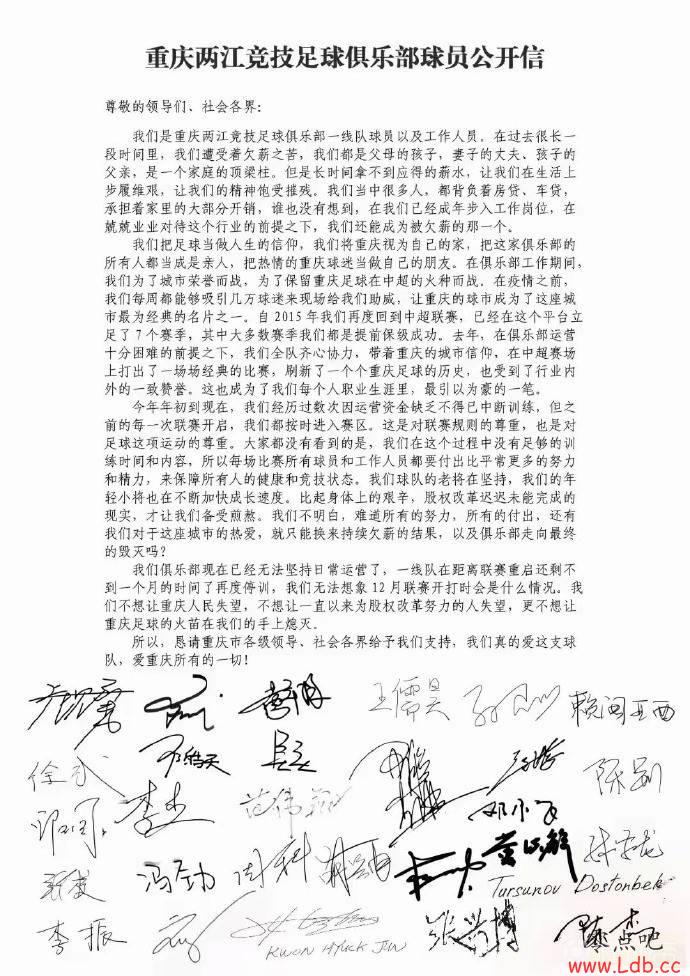 重庆两江竞技足球俱乐部球员公开信
尊敬的领导们、社会各界：
我们是重庆两江竞技足球俱乐部一线队球员以及工作人员。在过去很长一
段时间里，我们遭受着欠薪之苦，我们都是父母的孩子，妻子的丈夫、孩子的
父亲，是一个家庭的顶梁柱。但是长时间拿不到应得的薪水，让我们在生活上
步履维艰，让我们的精神饱受摧残。我们当中很多人，都背负着房贷、车贷，
承担着家里的大部分开销，谁也没有想到，在我们已经成年步入工作岗位，在
兢兢业业对待这个行业的前提之下，我们还能成为被欠薪的那一个。
我们把足球当做人生的信仰，我们将重庆视为自己的家，把这家俱乐部的
所有人都当成是亲人，把热情的重庆球迷当做自己的朋友。在俱乐部工作期间，
我们为了城市荣誉而战，为了保留重庆足球在中超的火种而战。在疫情之前，
我们每周都能够吸引几万球迷来现场给我们助威，让重庆的球市成为了这座城
市最为经典的名片之一。自 2015 年我们再度回到中超联赛，已经在这个平台立
足了 7 个赛季，其中大多数赛季我们都是提前保级成功。去年，在俱乐部运营
十分困难的前提之下，我们全队齐心协力，带着重庆的城市信仰，在中超赛场
上打出了一场场经典的比赛，刷新了一个个重庆足球的历史，也受到了行业内
外的一致赞誉。这也成为了我们每个人职业生涯里，最引以为豪的一笔。
今年年初到现在，我们经历过数次因运营资金缺乏不得已中断训练，但之
前的每一次联赛开启，我们都按时进入赛区。这是对联赛规则的尊重，也是对
足球这项运动的尊重。大家都没有看到的是，我们在这个过程中没有足够的训
练时间和内容，所以每场比赛所有球员和工作人员都要付出比平常更多的努力
和精力，来保障所有人的健康和竞技状态。我们球队的老将在坚持，我们的年
轻小将也在不断加快成长速度。比起身体上的艰辛，股权改革迟迟未能完成的
现实，才让我们备受煎熬。我们不明白，难道所有的努力，所有的付出，还有
我们对于这座城市的热爱，就只能换来持续欠薪的结果，以及俱乐部走向最终
的毁灭吗？
我们俱乐部现在已经无法坚持日常运营了，一线队在距离联赛重启还剩不
到一个月的时间了再度停训，我们无法想象 12 月联赛开打时会是什么情况。我
们不想让重庆人民失望，不想让一直以来为股权改革努力的人失望，更不想让
重庆足球的火苗在我们的手上熄灭。
所以，恳请重庆市各级领导、社会各界给予我们支持，我们真的爱这支球
队，爱重庆所有的一切！
王儒昊 赖闽亚西
邓小飞
冯劲 周科
Tursunov Dostonbek
李振
KWON HYUCK JIN
懂点吧
www.Ldb.cc